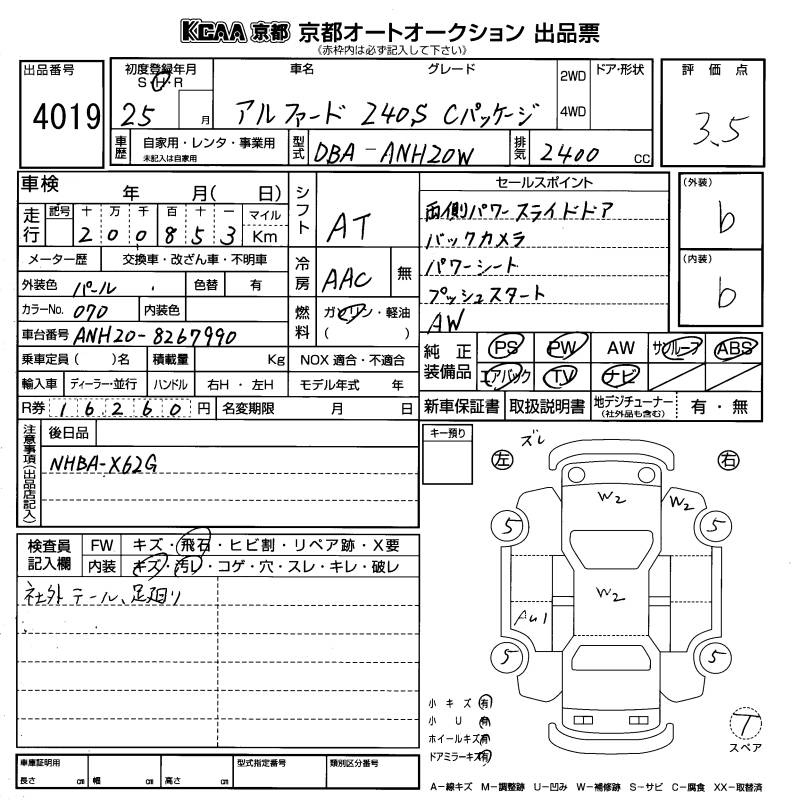 KCAA 京都 京都オートオークション 出品票
《赤枠内は必ず記入して下さい》
出品番号 初度登録年月 車名 グレード 2WD ドア・形状 評価点
S H R
4019 25 月 アルファード 240S Cパッケージ 4WD 3.5
車歴 自家用・レンタ・事業用 型式 DBA-ANH20W 排気 2400 CC
未記入は自家用
車検 年 月( 日) シフト AT セールスポイント (外装)
走行 記号 十 万 千 百 十 一 マイル 両側パワースライドドア b
2 0 0 8 5 3 Km バックカメラ
メーター歴 交換車・改ざん車・不明車 冷房 AAC 無 パワーシート (内装)
外装色 パール 色替 有 プッシュスタート b
カラーNo. 070 内装色 燃料 ガソリン・軽油 AW
車台番号 ANH20-8267990 ( )
乗車定員( )名 積載量 Kg NOX 適合・不適合 純正装備品 PS PW AW サンルーフ ABS
輸入車 ディーラー・並行 ハンドル 右H・左H モデル年式 年 エアバック TV ナビ
R券 16260 円 名変期限 月 日 新車保証書 取扱説明書 地デジチューナー 有・無
(社外品も含む)
注意事項(出品店記入) 後日品 キー預り ズレ
NHBA-X62G 左 右
W2 W2
5 5
検査員記入欄 FW キズ・飛石・ヒビ割・リペア跡・X要
内装 キズ・汚レ・コゲ・穴・スレ・キレ・破レ
社外テール、足廻り W2
AU1
5 5
小キズ 有
小U 有
ホイールキズ 有 T
ドアミラーキズ 有 スペア
車庫証明用 型式指定番号 類別区分番号
長さ cm 幅 cm 高さ cm
A−線キズ M−調整跡 U−凹み W−補修跡 S−サビ C−腐食 XX−取替済